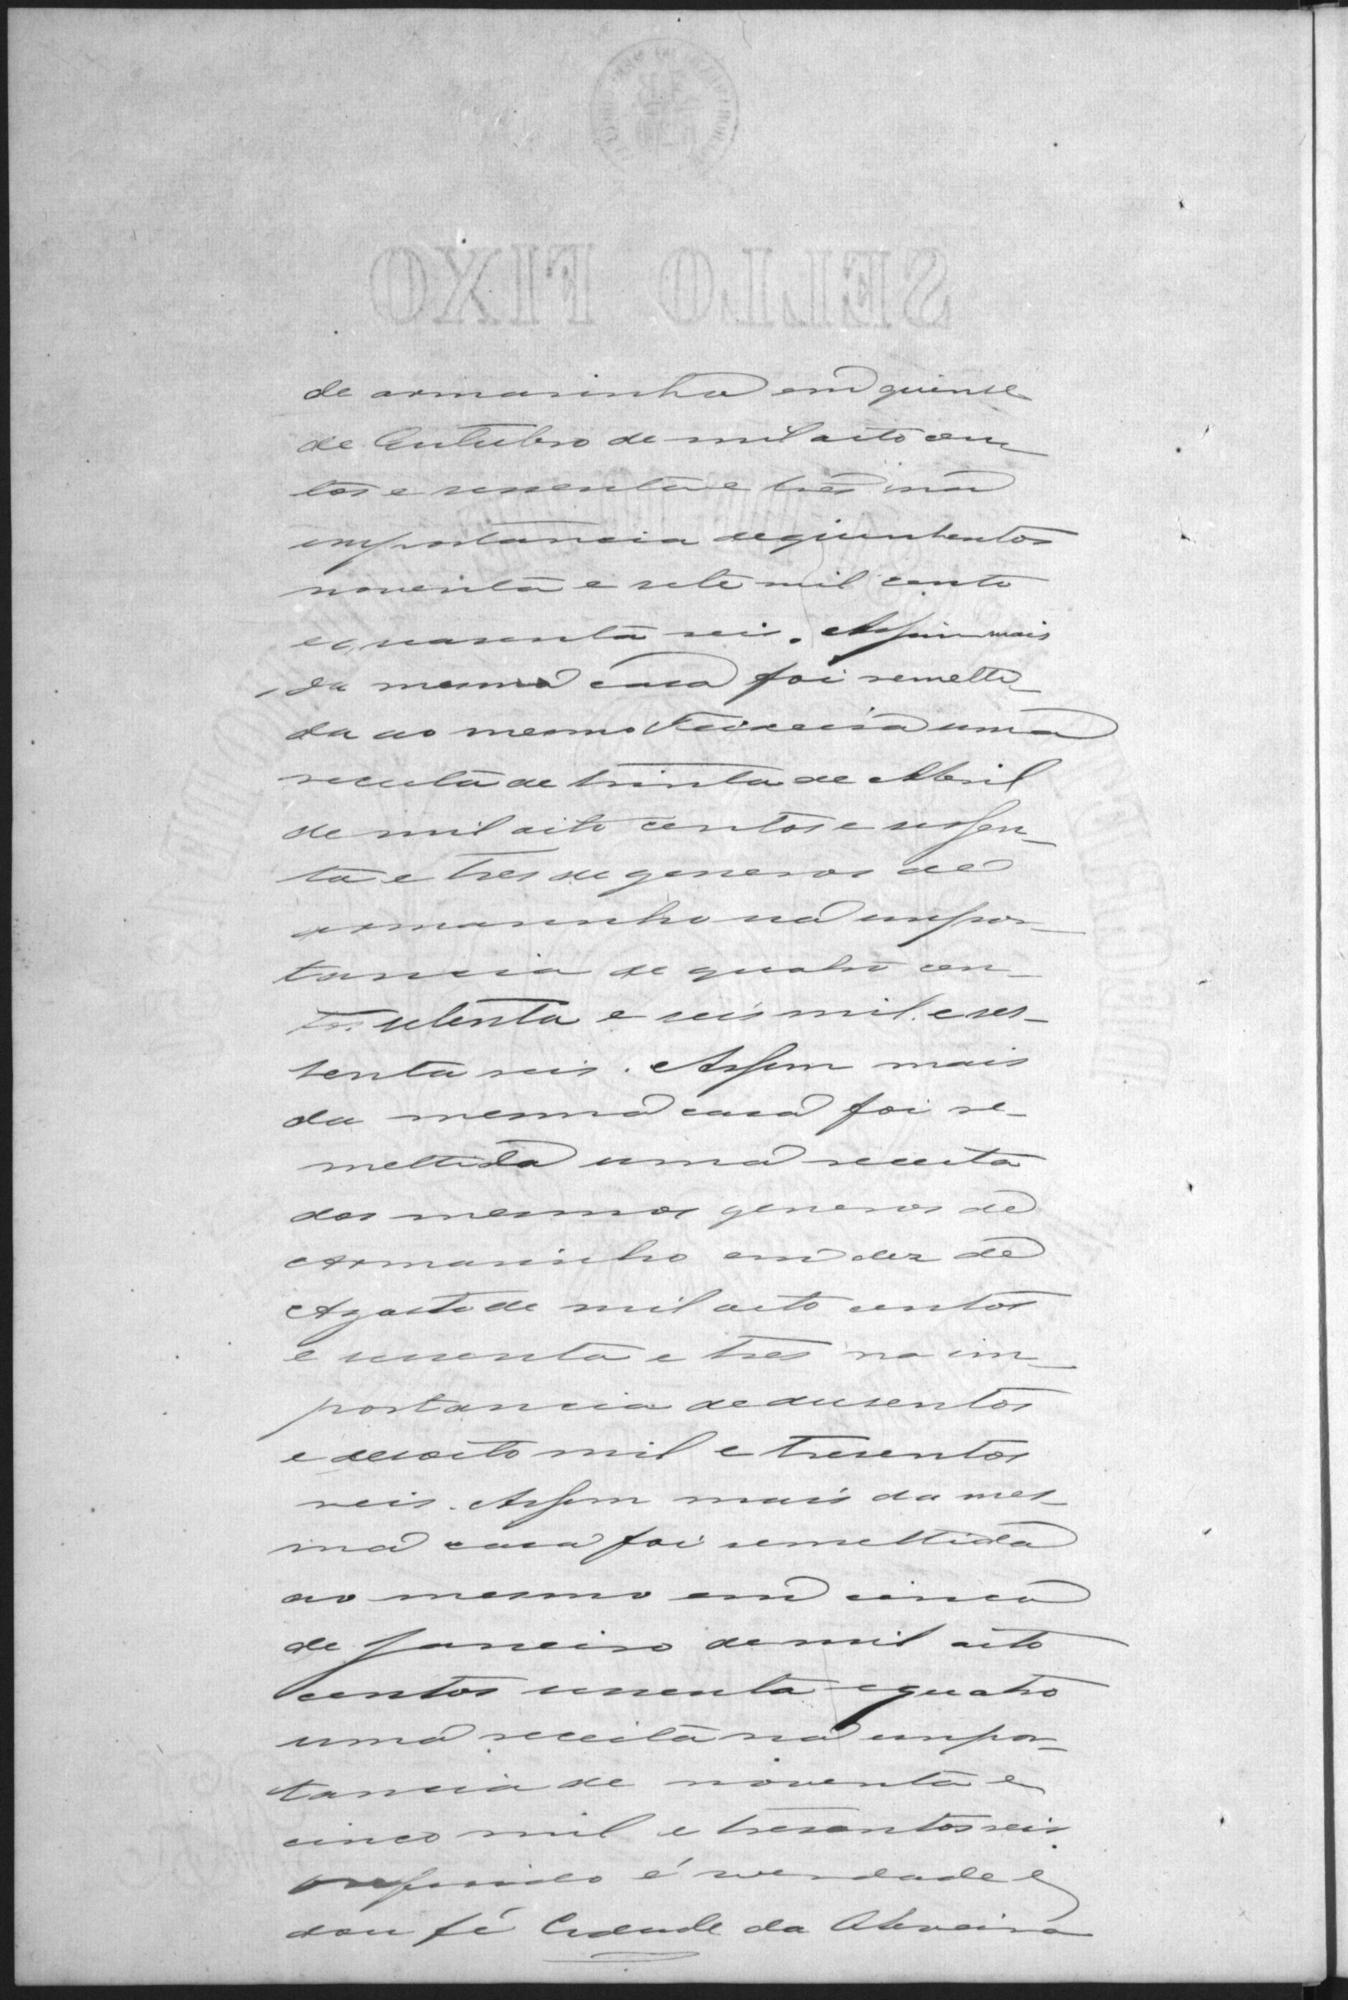 SELLO FIXO
de armarinho em quinse
de Outubro de mil oito cen_
tos e sessenta e tres na
importancia de quinhentos
noventa e sete mil cento
e quarenta reis. Assim mais
da mesma casa foi remetti_
da ao mesmo Teixeira uma
receita de trinta de Abril
de mil oito centos e sessen_
ta e tres de generos de
armarinho na impor_
tancia de quatro cen_
tos setenta e seis mil e ses_
senta reis. Assim mais
da mesma casa foi re_
mettida uma receita
dos mesmos generos de
Armarinho em dez de
Agosto de mil oito centos
e sessenta e tres na im_
portancia de dusentos
e desoito mil e tresentos
reis. Assim mais da mes_
ma casa foi remettida
ao mesmo em cinco
de Janeiro de mil oito
centos sessenta e quatro
uma receita na impor_
tancia de noventa e
cinco mil e tresentos reis
o referido é verdade e
dou fé Cidade da